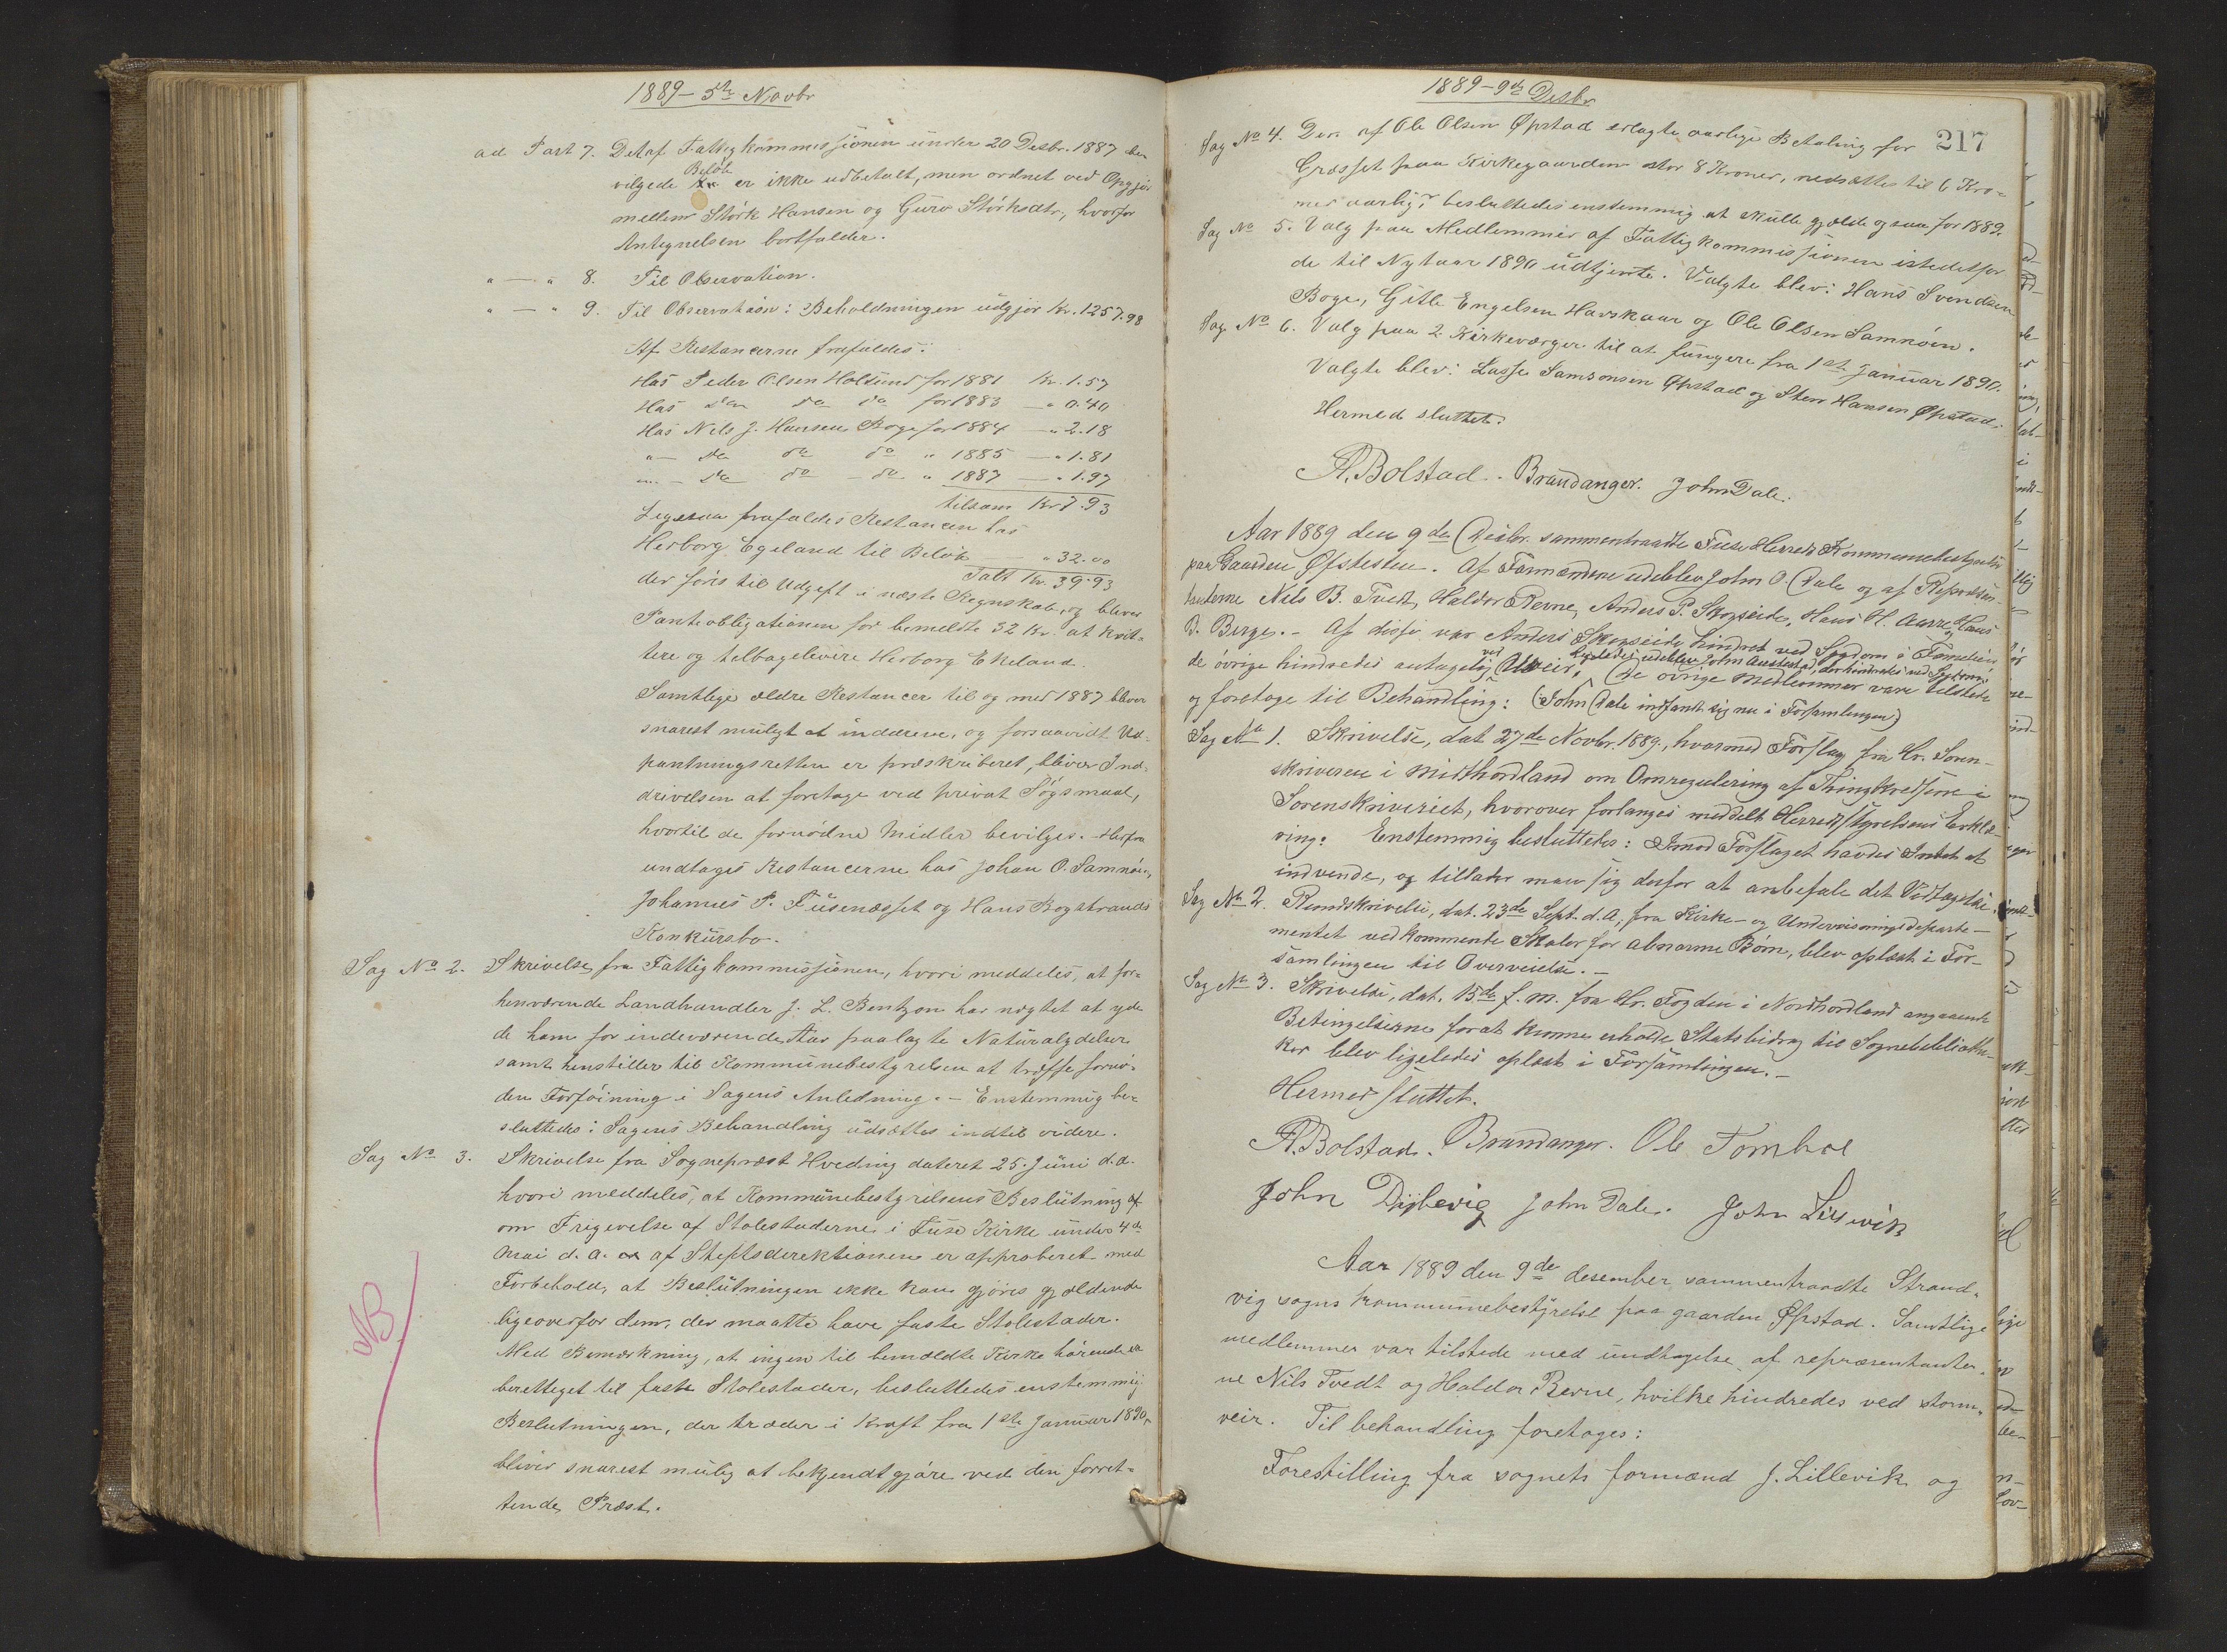 1889 - 5te Novbr
ad Post 7. Det af Fattigkommissionen under 20 Desbr. 1887 be-
vilgede Beløb er ikke udbetalt, men ordnet ved Opgjør
mellem Størk Hansen og Guro Størksdtr., hvorfor
Antegnelsen bortfalder.
" — " 8. Til Observation.
" — " 9. Til Observation: Beholdningen udgjør Kr. 1257.98
Af Restancerne frafaldes:
Hos Peder Olsen Holdund for 1881 Kr. 1.57
Hos den do do for 1883 — " 0.40
Hos Nils J. Hansen Boge for 1884 — " 2.18
" — do do do " 1885 — " 1.81
" — do do — do " 1887 — " 1.97
tilsam Kr 7.93
Legesaa frafaldes Restancen hos
Herborg Egeland til Beløb — " 32.00
Ialt Kr. 39.93
der føres til Udgift i næste Regnskab, og bliver
Panteobligationen for bemeldte 32 Kr. at kvit-
tere og tilbagelevere Herborg Ekeland.
Samtlige ældre Restancer til og med 1887 bliver
snarest muligt at inddrive, og forsaavidt Ud-
pantningsretten er præskriberet, bliver Ind-
drivelsen at foretage ved privat Søgsmaal,
hvortil de fornødne Midler bevilges. - Herfra
undtages Restancerne hos Johan O. Samnøen,
Johannes P. Fusenæsset og Hans Bogstrands
Konkursbo.
Sag No 2. Skrivelse fra Fattigkommissionen, hvori meddeles, at for-
henværende Landhandler J. L. Bentzon har nægtet at yde
de ham for indeværende Aar paalagte Naturalydelser
samt henstiller til Kommunebestyrelsen at træffe fornø-
den Forføining i Sagens Anledning. - Enstemmig be-
sluttedes: Sagens Behandling udsættes indtil videre.
Sag No 3. Skrivelse fra Sogneprest Hveding dateret 25. Juni d.a.
hvori meddeles, at Kommunebestyrelsens Beslutning af
om Frigivelse af Stolestaderne i Fuse Kirke under 4de
Mai d. a. af Stiftsdirektionen er approberet med
Forbehold, at Beslutningen ikke kan gjøres gjældende
ligeoverfor dem, der maatte have faste Stolestader.
Med Bemærkning, at ingen til bemældte Kirke hørende er
berettiget til faste Stolestader, besluttedes enstemmig:
Beslutningen, der træder i Kraft fra 1ste Januar 1890,
bliver snarest mulig at bekjendtgjøre ved den forret-
tende Præst.
NB
1889 - 9de Desbr
217
Sag No 4. Den af Ole Olsen Øpstad erlagte aarlige Betaling for
Græsset paa Kirkegaarden stor 8 Kroner, nedsættes til 6 Kro-
ner aarlig, besluttedes enstemmig at skulle gjælde ogsaa for 1889.
Sag No 5. Valg paa Medlemmer af Fattigkommissionen istedetfor
de til Nytaar 1890 udtjente. Valgte blev: Hans Svendsen
Boge, Gitle Engelsen Havskaar og Ole Olsen Samnøen.
Sag No 6. Valg paa 2 Kirkeværger til at fungere fra 1ste Januar 1890.
Valgte blev: Lasse Samsonsen Øpstad og Sten Hansen Øpstad.
Hermed sluttet.
A. Bolstad. Brandanger. John Dale.
Aar 1889 den 9de Desbr. sammentraadte Fuse Herreds Kommunebestyrelse
paa Gaarden Øfstesten. Af Formændene udeblev John O. Dale og af Repræsen-
tanterne Nils B. Tvedt, Haldor Revne, Anders P. Skogseide, Hans H. Aarre og Hans
D. Berge. - Af disse var Anders Skogseide hindret ved Sygdom i Familien
de øvrige hindredes antagelig ved Uveir. Ligeledes udeblev John Austestad, der hindredes ved Sygdom. De øvrige Medlemmer vare tilstede
og foretoge til Behandling: (John Dale indfandt sig nu i Forsamlingen)
Sag No 1. Skrivelse, dat 27de Novbr. 1889, hvormed Forslag fra Hr. Soren-
skriveren i Midthordland om Omregulering af Thingkredsene i
Sorenskriveriet, hvorover forlanges meddelt Herredsstyrelsens Erklæ-
ring: Enstemmig besluttedes: Imod Forslaget havdes Intet at
indvende, og tillader man sig derfor at anbefale det Vedtagelse.
Sag No 2. Rundskrivelse, dat. 23de Sept. d. A., fra Kirke- og Undervisningsdeparte-
mentet vedkommende Skoler for abnorme Børn, blev oplæst i For-
samlingen til Overveielse. -
Sag No 3. Skrivelse, dat. 15de f. m. fra Hr. Fogden i Nordhordland angaaende
Betingelserne forat kunne erholde Statsbidrag til Sognebibliothe-
ker blev ligeledes oplæst i Forsamlingen. -
Hermed sluttet.
A. Bolstad. Brandanger. Ole Tombre
John Dyblevig John Dale. John Lillevik
Aar 1889 den 9de desember sammentraadte Strand-
vig sogns kommunebestyrelse paa gaarden Øpstad. Samtlige
medlemmer var tilstede med undtagelse af repræsentanter-
ne Nils Tvedt og Haldor Revne, hvilke hindredes ved storm-
veir. Til behandling foretages:
Forestilling fra sognets formænd J. Lillevik og